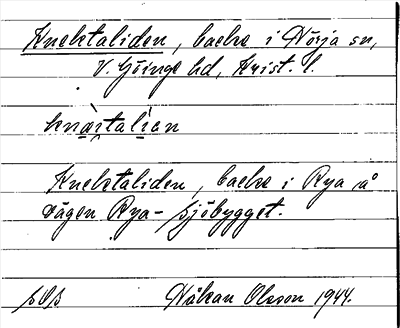 Knektaliden, backe i Nörja sn,
V. Göinge hd, Krist. l.
Knektaliden, backe i Rya å
vägen Rya - Sjöbygget.
Håkan Olsson 1944.